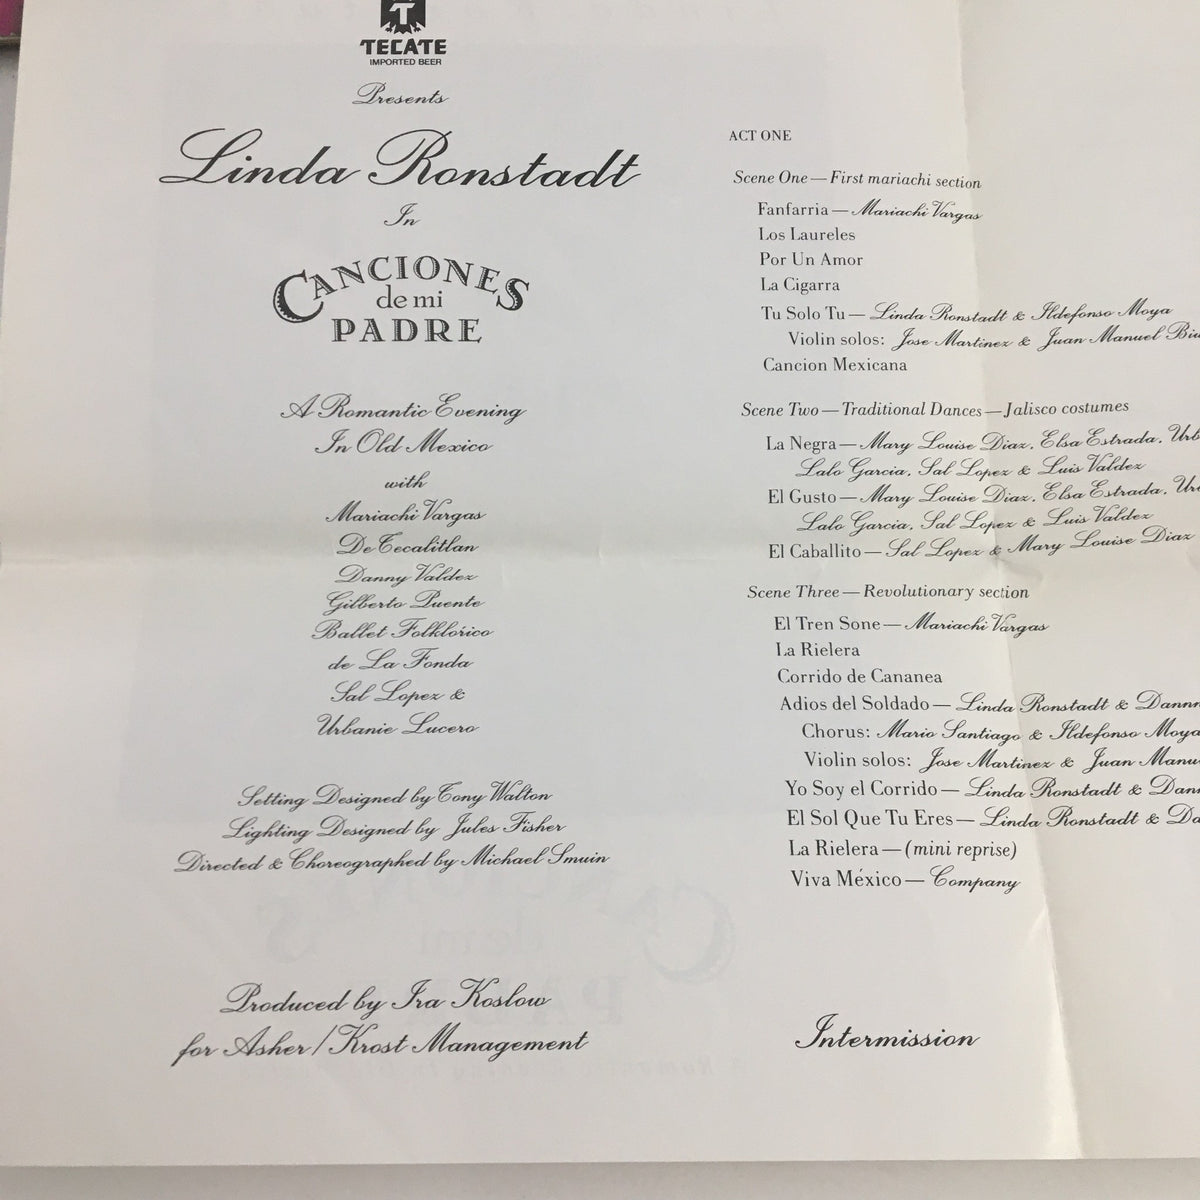 TECATE
IMPORTED BEER
Presents
Linda Ronstadt
In
CANCIONES
de mi
PADRE
A Romantic Evening
In Old Mexico
with
Mariachi Vargas
De Tecalitlan
Danny Valdez
Gilberto Puente
Ballet Folklórico
de La Fonda
Sal Lopez &
Urbanie Lucero
Setting Designed by Tony Walton
Lighting Designed by Jules Fisher
Directed & Choreographed by Michael Smuin
Produced by Ira Koslow
for Asher/Krost Management
ACT ONE
Scene One — First mariachi section
Fanfarria — Mariachi Vargas
Los Laureles
Por Un Amor
La Cigarra
Tu Solo Tu — Linda Ronstadt & Ildefonso Moya
Violin solos: Jose Martinez & Juan Manuel
Cancion Mexicana
Scene Two — Traditional Dances — Jalisco costumes
La Negra — Mary Louise Diaz, Elsa Estrada,
Lalo Garcia, Sal Lopez & Luis Valdez
El Gusto — Mary Louise Diaz, Elsa Estrada,
Lalo Garcia, Sal Lopez & Luis Valdez
El Caballito — Sal Lopez & Mary Louise Diaz
Scene Three — Revolutionary section
El Tren Sone — Mariachi Vargas
La Rielera
Corrido de Cananea
Adios del Soldado — Linda Ronstadt &
Chorus: Mario Santiago & Ildefonso Moya
Violin solos: Jose Martinez & Juan
Yo Soy el Corrido — Linda Ronstadt &
El Sol Que Tu Eres — Linda Ronstadt &
La Rielera — (mini reprise)
Viva México — Company
Intermission